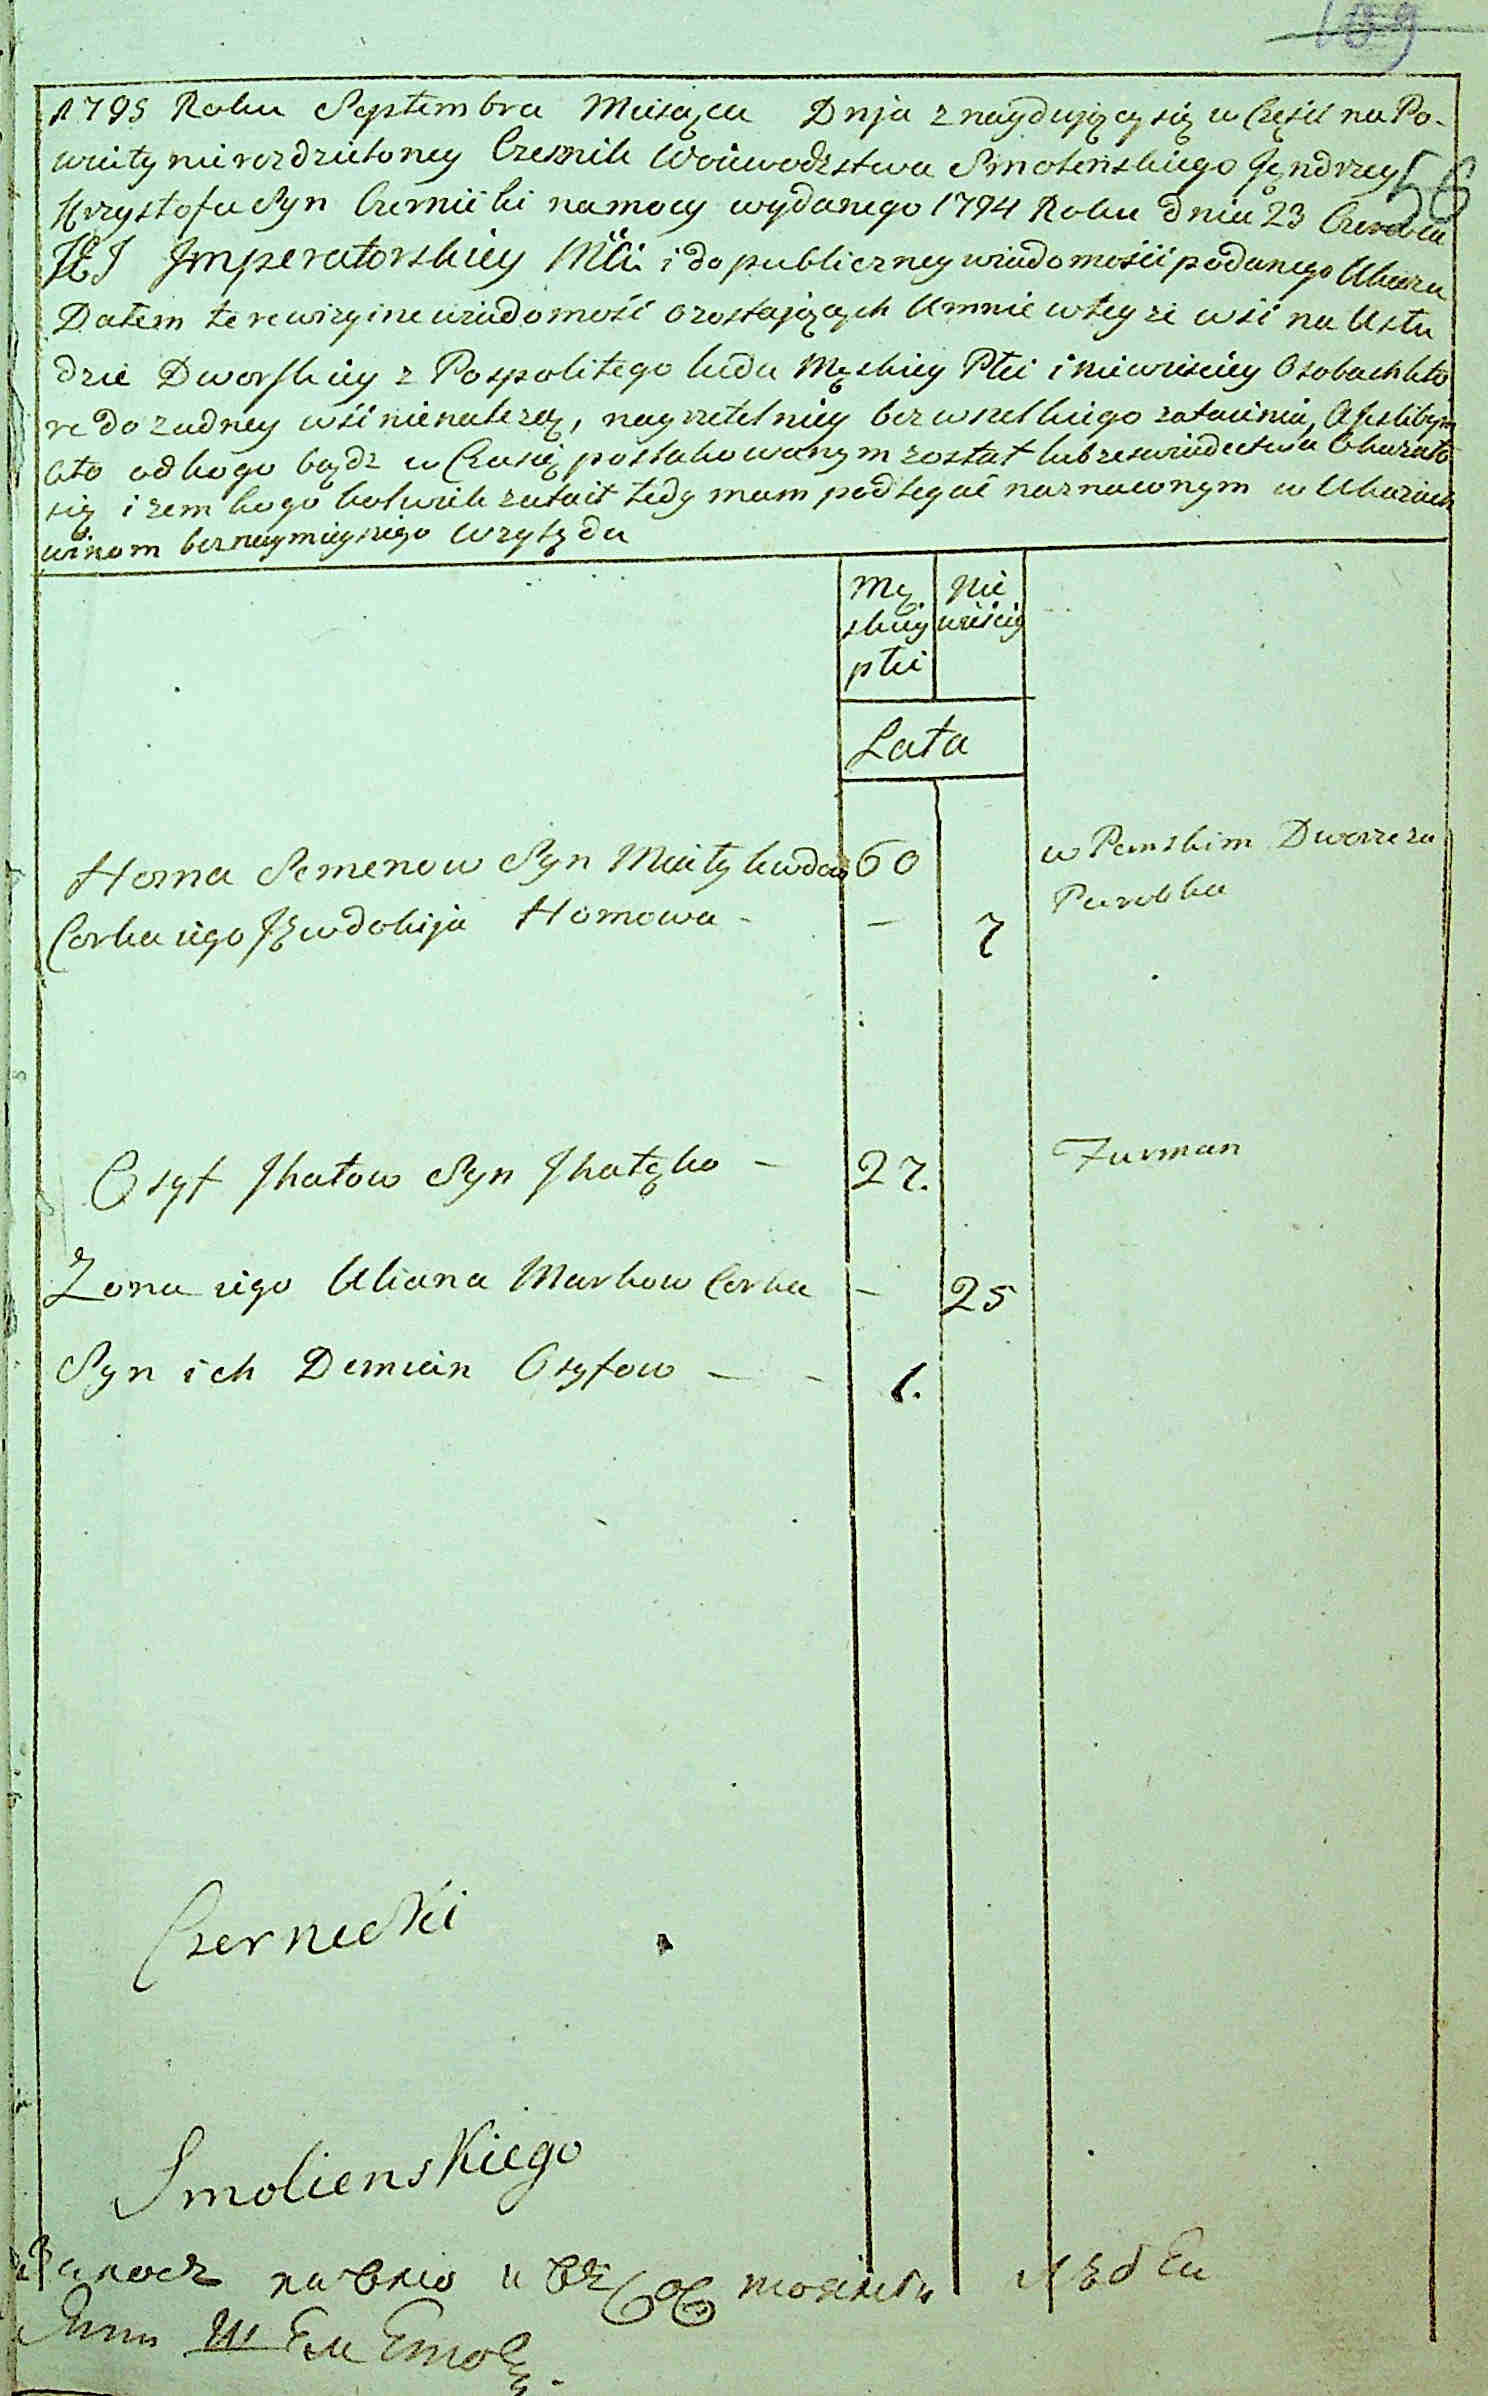 109
56
1795 Roku Septembra Miesąca Dnja znaydujący się w Częśći na Po-
wiaty nierozdzieloney Czesnik Woiewodzstwa Smoleńskiego Jędrzey
Krzysztofa Syn Czernicki na mocy wydanego 1794 Roku dnia 23 Czerwca
JEJ Jmperatorskiey Mći i do publiczney wiadomośći podanego Ukazu
Dałem te rewizyine wiadomość ozostających Umnie wteyże wśi na Usłu
dzie Dworskiey z Pospolitego ludu Męskiey Płci i niewieściey Osobach kto
re do żadney wśi nienależą, nayrzetelniey bez wszelkiego zataienia, A jeslibym
kto od kogo bądz w Czasię poszlakowanym został lub zeświadectwa Okazało
się i żem kogo kolwiek zataił tedy mam podlegać naznaconym w Ukazach
winom beznaymnieyszego Względu
Mę Nie
skiey wieściey
płci
Lata
Homa Semenow Syn 60 w Panskim Dworze za
Corka iego Jewdokija Homowa - - 7 Parobka
Osyf Jhatow Syn Jhatęko - 27. Furman
Zona iego Uliana Markow Corka - 25
Syn ich Demian Osyfow - - 1.
Czernicki
Smolienskiego